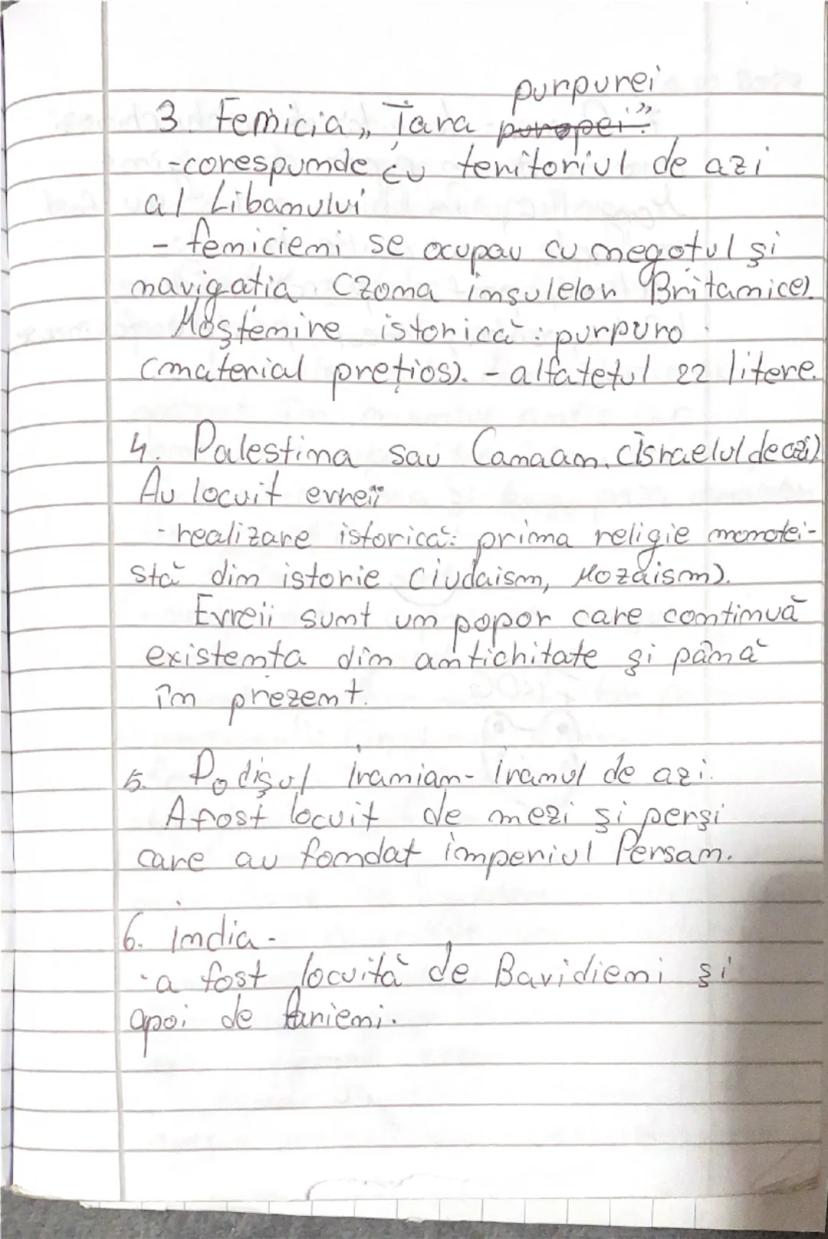 purpurei
3. Fenicia „Țara puropei”
-corespunde cu teritoriul de azi
al Libanului
- fenicieni se ocupau cu negotul și
navigatia (zona insulelor Britanice).
Moștenire istorică: purpuro
(material prețios). - alfatetul 22 litere.
4. Palestina sau Canaan. (Israelul de azi)
Au locuit evreii
-realizare istorică: prima religie monotei-
stă din istorie (iudaism, Mozaism).
Evreii sunt un popor care continuă
existenta din antichitate și până
în prezent.
5. Podișul Iranian - Iranul de azi.
A fost locuit de mezi și perși
care au fondat imperiul Persan.
6. India -
-a fost locuită de Bavidieni și
apoi de Arieni.